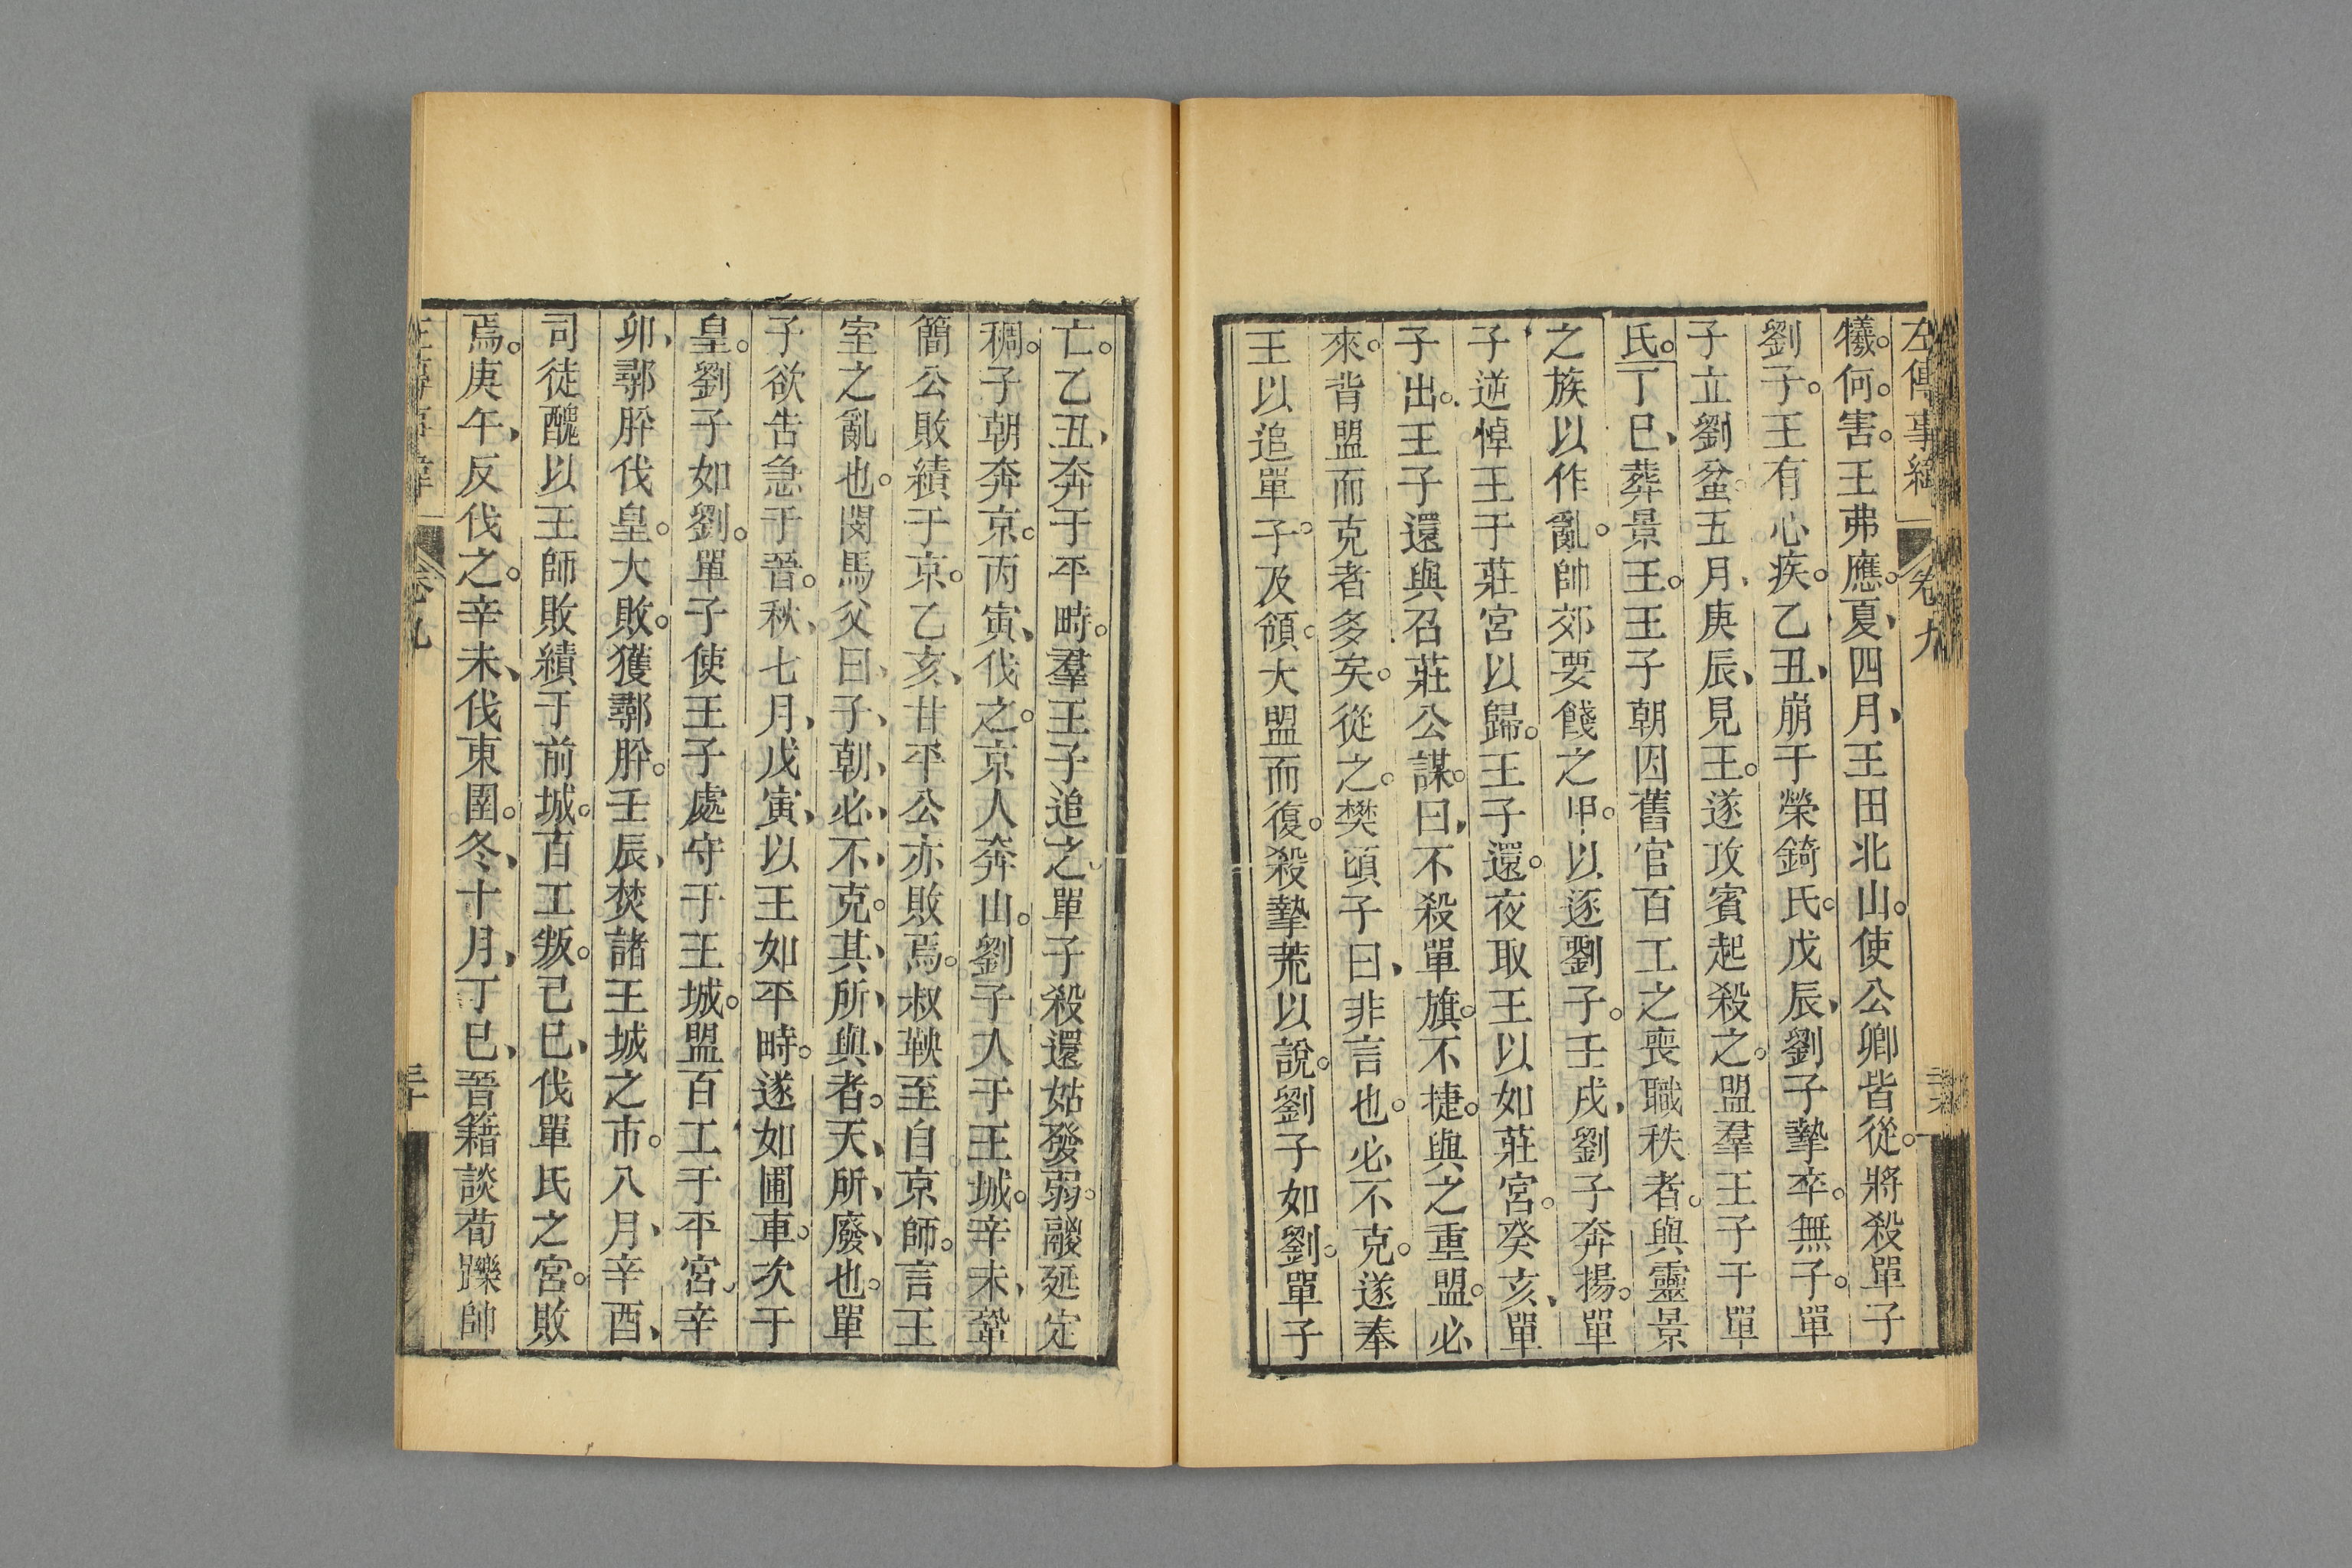 左傳事緯 卷九
犧。何。害。王弗應。夏、四月、王田北山。使公卿皆從。將殺單子
劉子。王有心疾。乙丑、崩于榮錡氏。戊辰、劉子摯卒。無子。單
子立劉蚠。五月、庚辰、見王。遂攻賓起殺之。盟羣王子于單
氏。丁巳、葬景王。王子朝因舊官百工之喪職秩者。與靈景
之族以作亂。帥郊要餞之甲。以逐劉子。壬戌、劉子奔揚。單
子逆悼王于莊宮以歸。王子還。夜取王以如莊宮。癸亥、單
子出。王子還與召莊公謀。曰、不殺單旗。不捷。與之重盟。必
來。背盟而克者多矣。從之。樊頃子曰、非言也。必不克。遂奉
王以追單子。及領。大盟而復。殺摯荒以說。劉子如劉。單子
亡。乙丑、奔于平畤。羣王子追之。單子殺還姑發弱。鬷延定
稠。子朝奔京。丙寅、伐之。京人奔山。劉子入于王城。辛未、鞏
簡公敗績于京。乙亥、甘平公亦敗焉。叔鞅至自京師。言王
室之亂也。閔馬父曰、子、朝、必、不、克。其、所、與、者。天、所、廢、也。單
子欲告急于晉。秋、七月、戊寅、以王如平畤。遂如圃車。次于
皇。劉子如劉。單子使王子處守于王城。盟百工于平宮。辛
卯、鄩肸伐皇。大敗。獲鄩肸。壬辰、焚諸王城之市。八月、辛酉、
司徒醜以王師敗績于前城。百工叛。己巳、伐單氏之宮。敗
焉。庚午、反伐之。辛未、伐東圉。冬、十月、丁巳、晉籍談荀躒帥
卷九